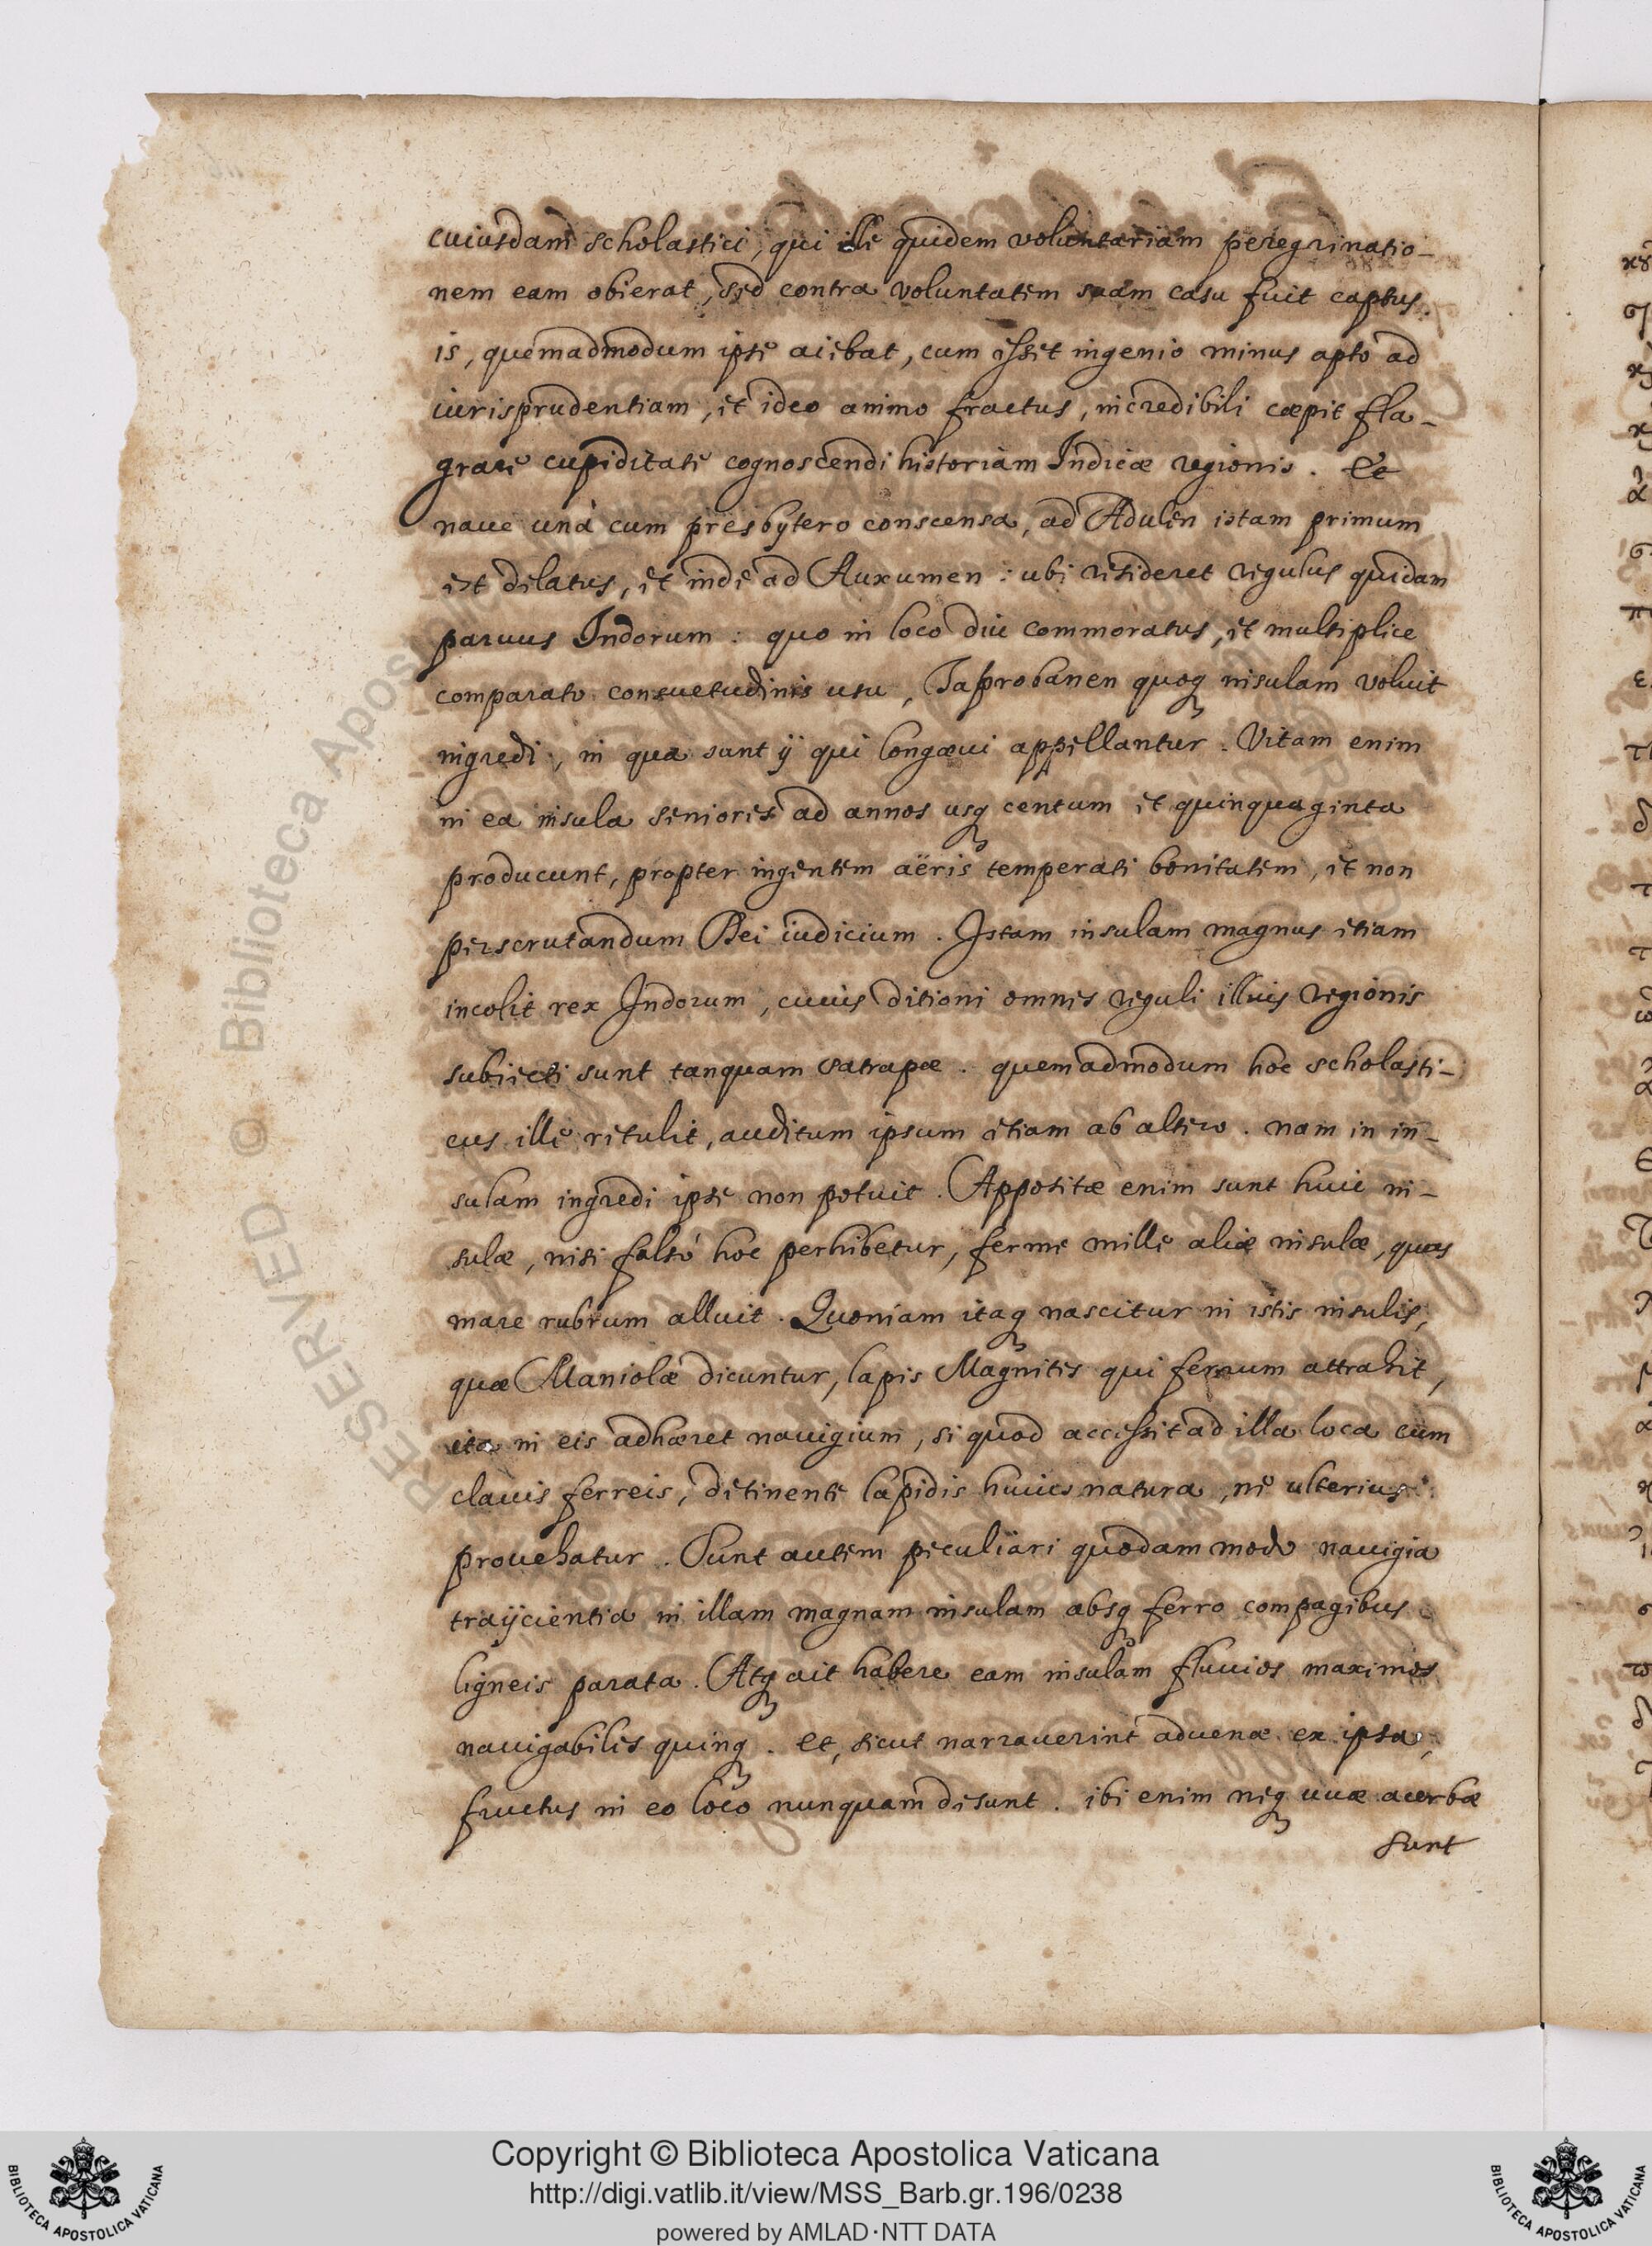 cuiusdam scholastici, qui ille quidem voluntariam peregrinatio-
nem eam obierat, sed contra voluntatem suam casu fuit captus.
is, quemadmodum ipse aiebat, cum esset ingenio minus apto ad
iurisprudentiam, et ideo animo fractus, incredibili cæpit fla-
grare cupiditate cognoscendi historiam Indicæ regionis. Et
naue unà cum presbytero conscensa, ad Adulen istam primum
est delatus, et inde ad Auxumen: ubi resideret regulus quidam
paruus Indorum: quo in loco diu commoratus, et multiplice
comparato consuetudinis usu, Taprobanen quoq insulam voluit
ingredi, in qua sunt ij qui longæui appellantur. Vitam enim
in ea insula seniores ad annos usq centum et quinquaginta
producunt, propter ingentem aëris temperati bonitatem, et non
perscrutandum Dei iudicium. Istam insulam magnus etiam
incolit rex Indorum, cuius ditioni omnes reguli illius regionis
subiecti sunt tanquam satrapæ. quemadmodum hoc scholasti-
cus ille retulit, auditum ipsum etiam ab altero. nam in in-
sulam ingredi ipse non potuit. Appositæ enim sunt huic in-
sulæ, nisi falsò hoc perhibetur, ferme mille aliæ insulæ, quas
mare rubrum alluit. Quoniam itaq nascitur in istis insulis,
quæ Maniolæ dicuntur, lapis Magnitis qui ferrum attrahit,
ita in eis adhæret nauigium, si quod accessit ad illa loca cum
clauis ferreis, detinente lapidis huius natura, ne ulterius
prouehatur. Sunt autem peculiari quodam modo nauigia
traijcientia in illam magnam insulam absq ferro compagibus
ligneis parata. Atq ait habere eam insulam fluuios maximos
nauigabiles quinq. et, sicut narrauerint aduenæ ex ipsa,
fructus in eo loco nunquam desunt. ibi enim neq uuæ acerbæ
sunt
RESERVED © Biblioteca Apos
Copyright © Biblioteca Apostolica Vaticana
http://digi.vatlib.it/view/MSS_Barb.gr.196/0238
powered by AMLAD·NTT DATA
BIBLIOTECA APOSTOLICA VATICANA
BIBLIOTECA APOSTOLICA VATICANA